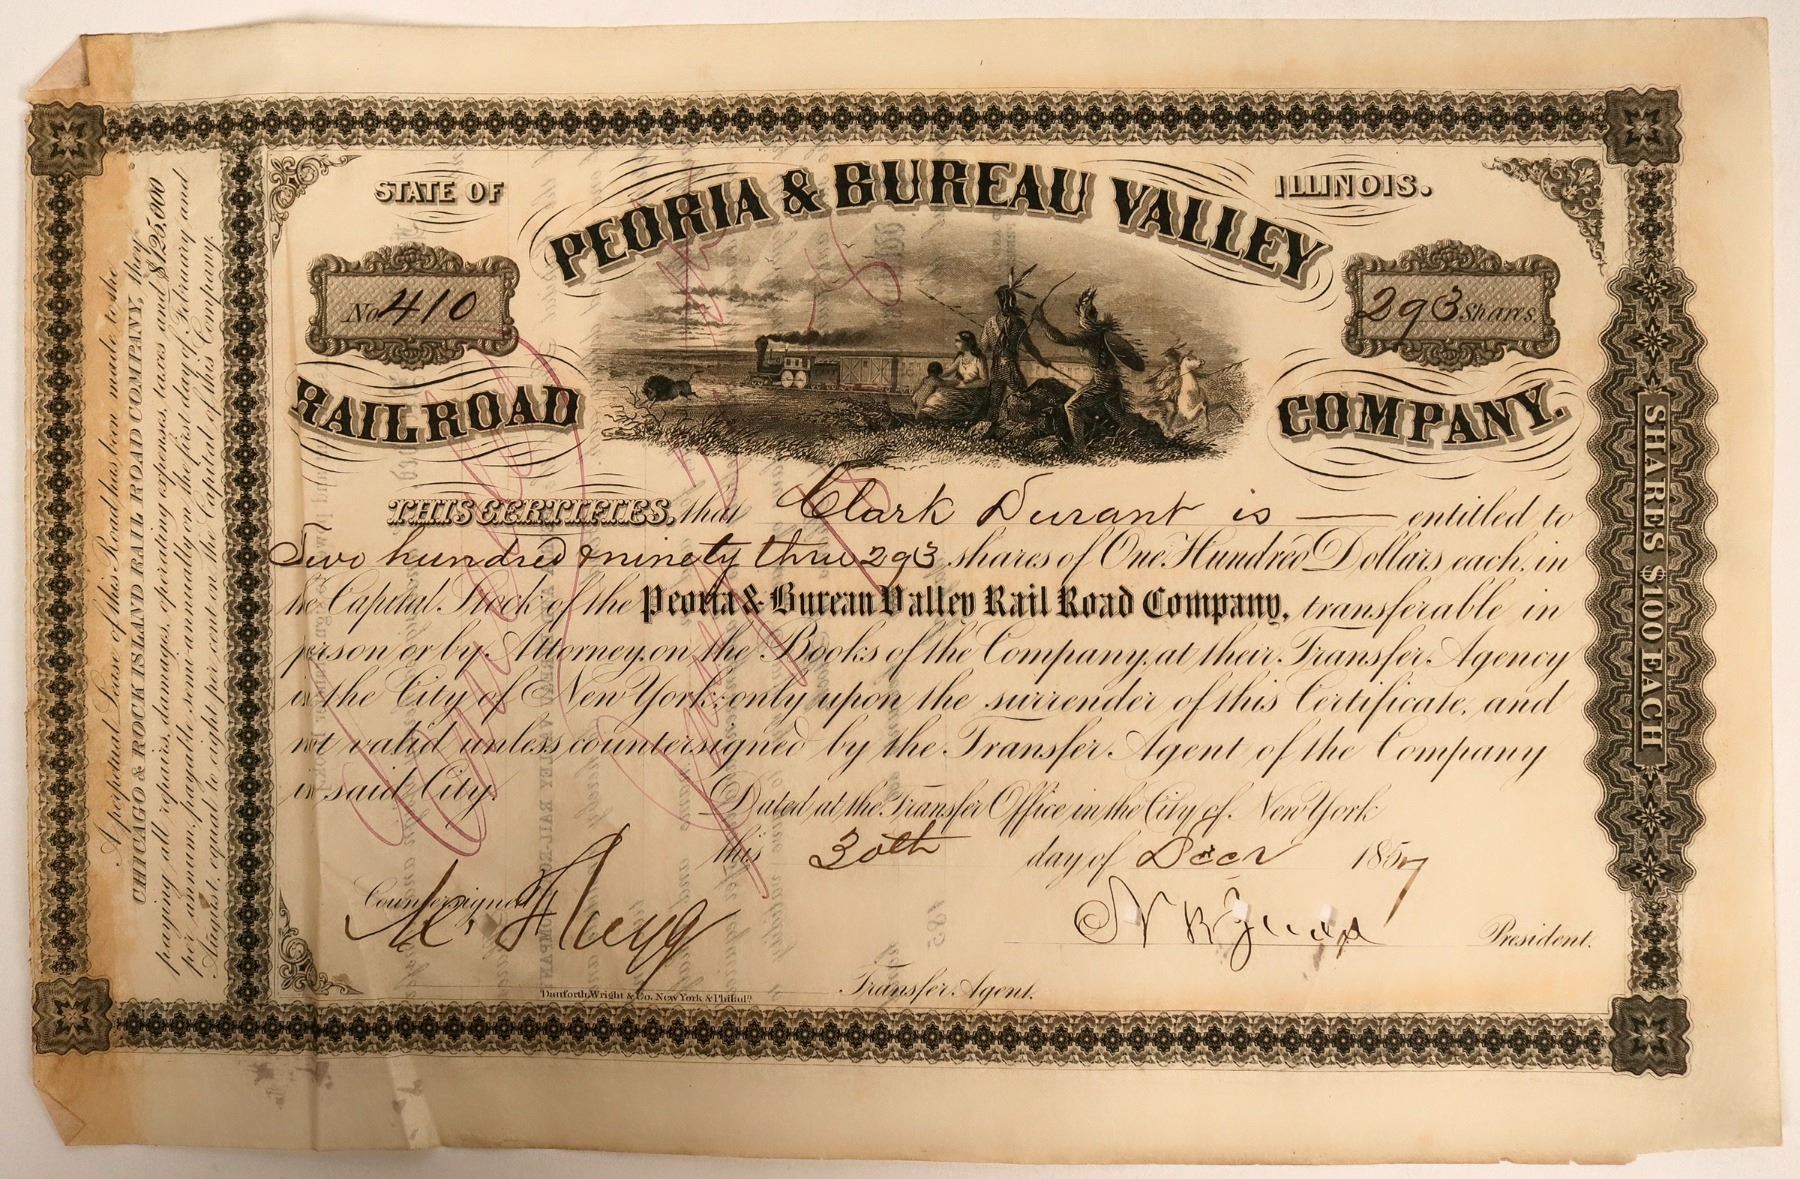 STATE OF ILLINOIS.
PEORIA & BUREAU VALLEY
No 410
293 Shares.
RAILROAD COMPANY.
THIS CERTIFIES, that Clark Durant is — entitled to
Two hundred & ninety three 293 shares of One Hundred Dollars each, in
the Capital Stock of the Peoria & Bureau Valley Rail Road Company, transferable in
person or by Attorney, on the Books of the Company, at their Transfer Agency
in the City of New York; only upon the surrender of this Certificate, and
not valid unless countersigned by the Transfer Agent of the Company
in said City.
Dated at the Transfer Office in the City of New York
this 30th day of Decr 1857
Countersigned
President.
Transfer Agent.
Danforth, Wright & Co. New York & Philada
A perpetual Lease of this Road has been made to the
CHICAGO & ROCK ISLAND RAIL ROAD COMPANY, they
paying all repairs, damages, operating expenses, taxes and $125,000
per annum, payable semi-annually on the first day of February and
August, equal to eight per cent on the Capital of this Company.
SHARES $100 EACH